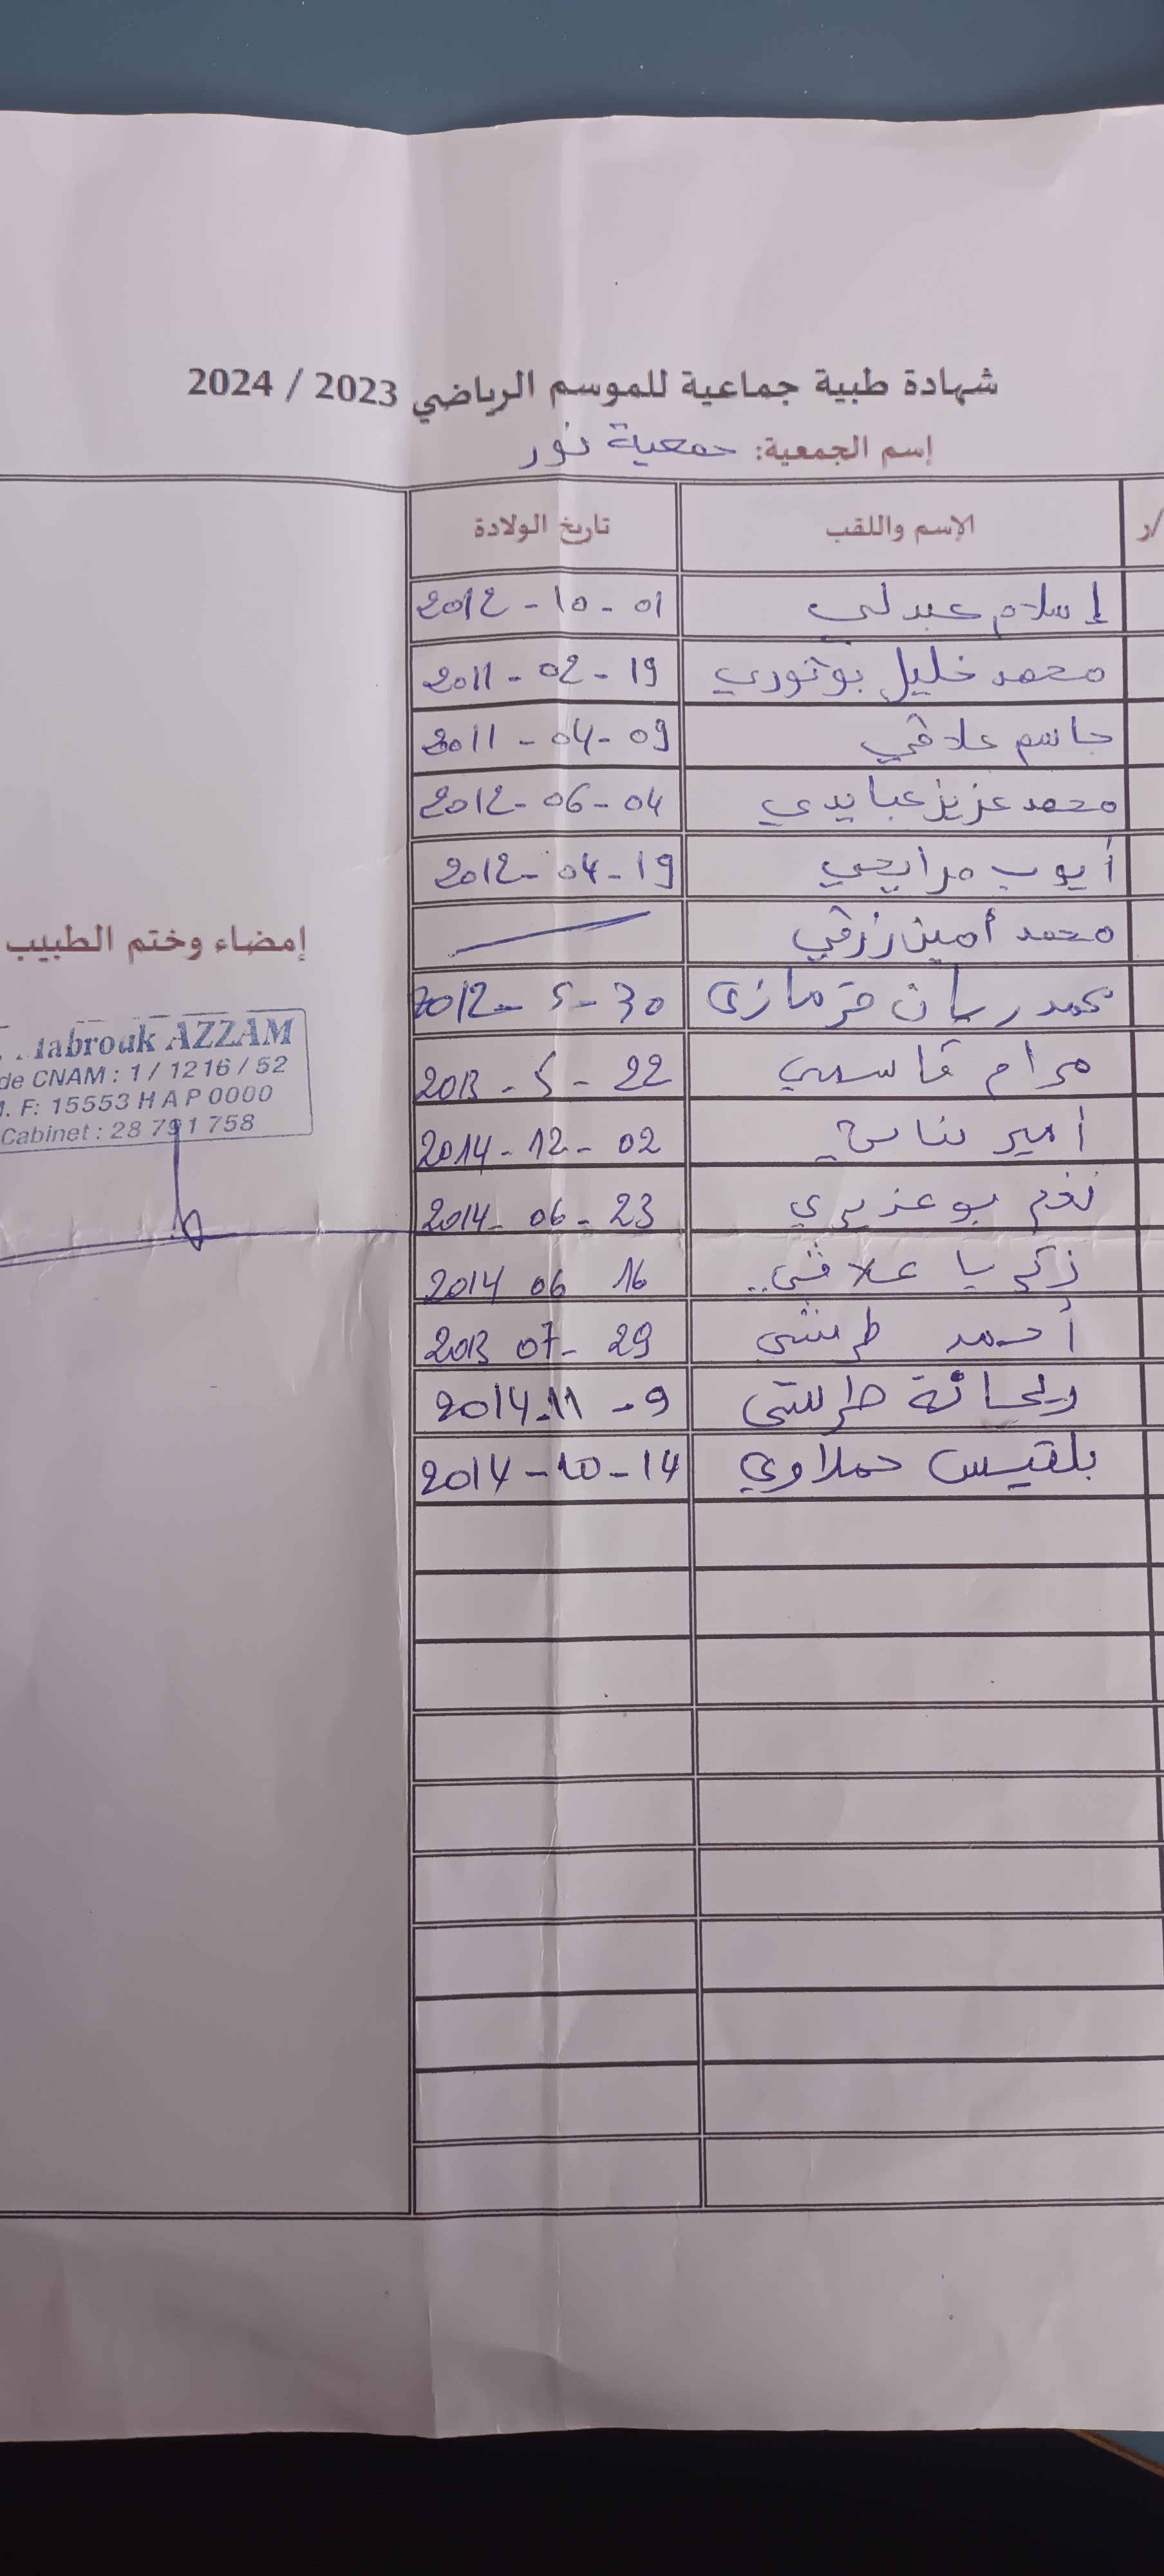 شهادة طبية جماعية للموسم الرياضي 2023 / 2024
إسم الجمعية: جمعية نور
/ر الإسم واللقب تاريخ الولادة
إسلام عبدلي 2012 - 10 - 01
محمد خليل بوثوري 2011 - 02 - 19
جاسم علاقي 2011 - 04 - 09
محمد عزيز عبايدي 2012 - 06 - 04
أيوب مرايحي 2012 - 04 - 19
محمد أمين زرقي
محمد ريان قرمازي 2012 - 5 - 30
مرام قاسمي 2013 - 5 - 22
أمير 2014 - 12 - 02
نغم بوعزيزي 2014 - 06 - 23
زكريا علاقي 2014 06 16
أحمد طرشي 2013 07 - 29
ريحانة طرشي 2014 - 11 - 9
بلقيس حملاوي 2014 - 10 - 14
إمضاء وختم الطبيب
abrouk AZZAM
de CNAM : 1 / 1216 / 52
. F: 15553 H A P 0000
Cabinet : 28 791 758